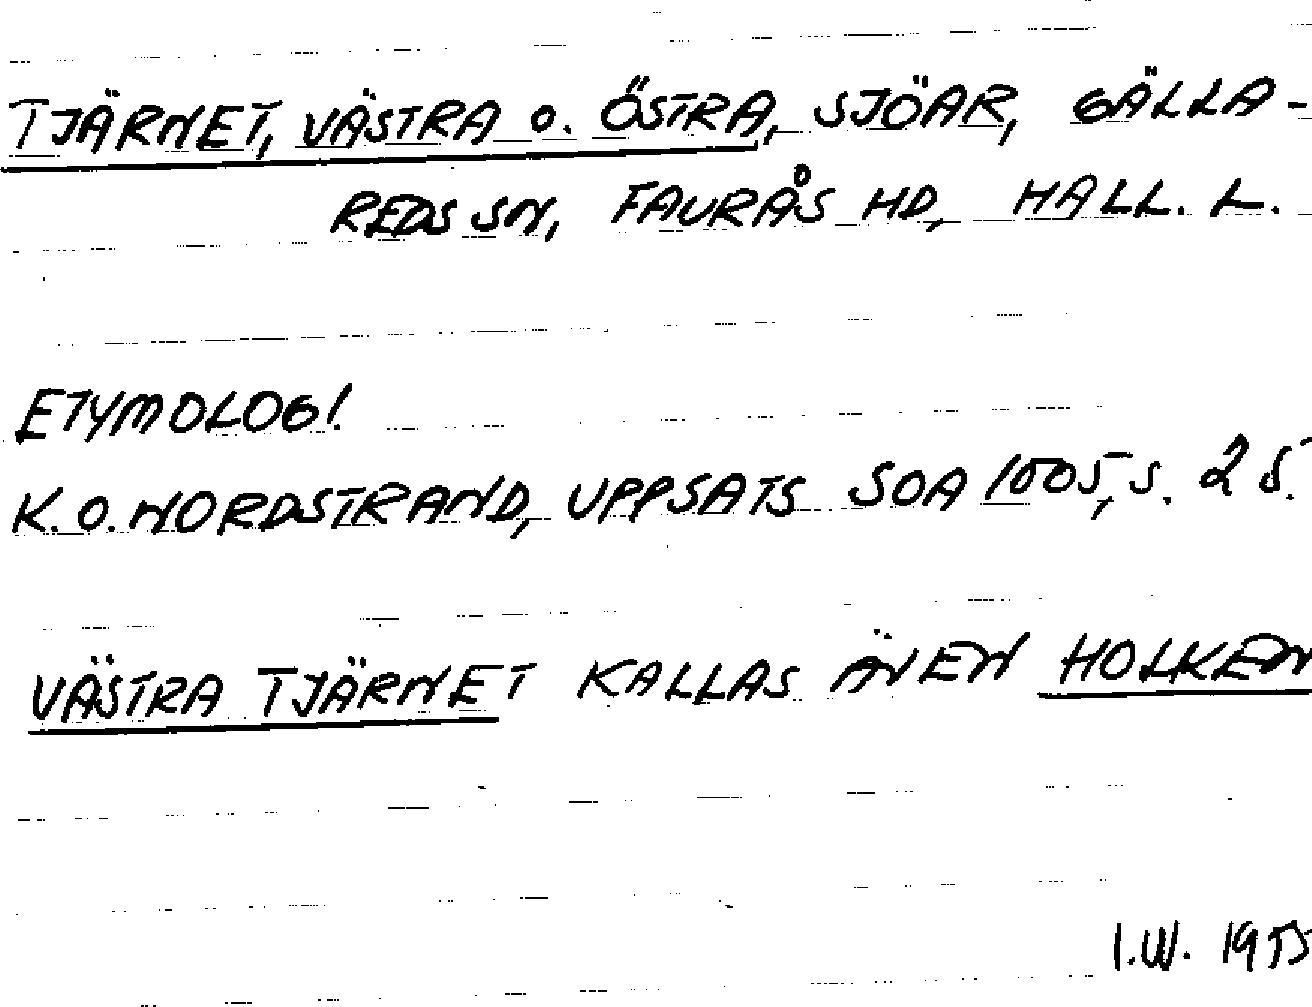 TJÄRNET, VÄSTRA O. ÖSTRA, SJÖAR, GÄLLA-
REDS SN, FAURÅS HD, HALL. L.
ETYMOLOGI.
K.O. NORDSTRAND, UPPSATS SOA 1005, S. 25.
VÄSTRA TJÄRNET KALLAS ÄVEN HOLKEN
I.W. 1955